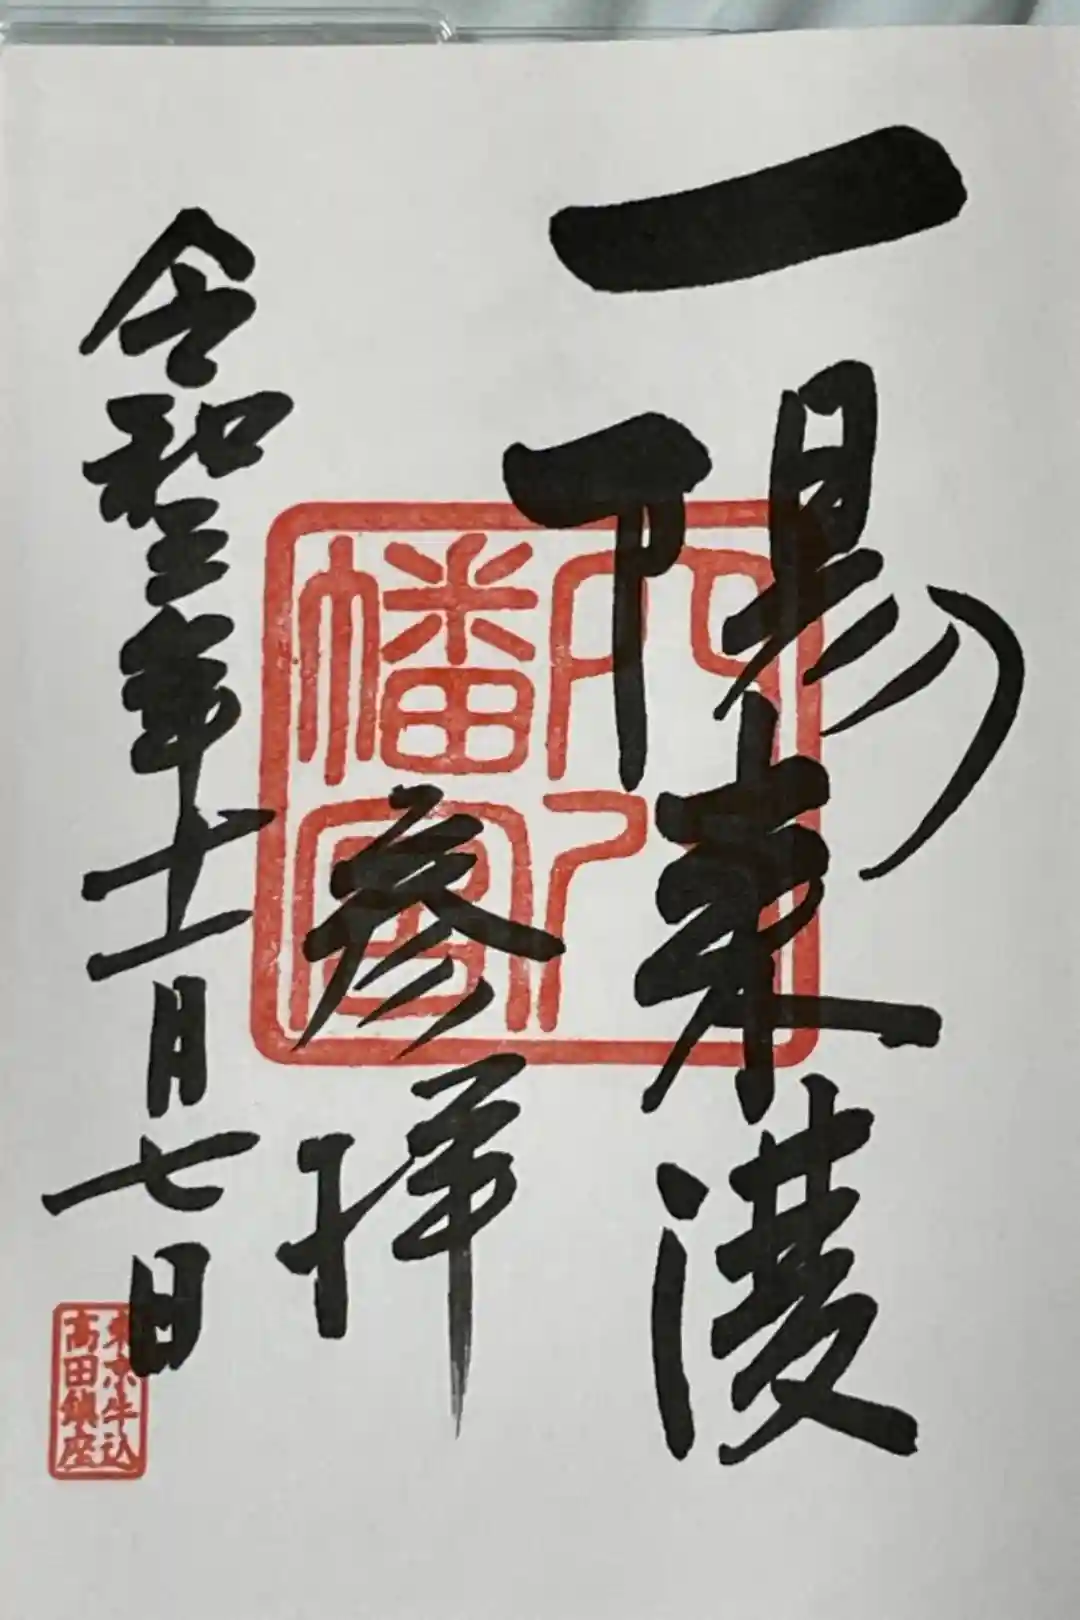 一陽来復
参拝
令和三年十一月七日
穴八
幡宮
東京牛込
高田鎮座